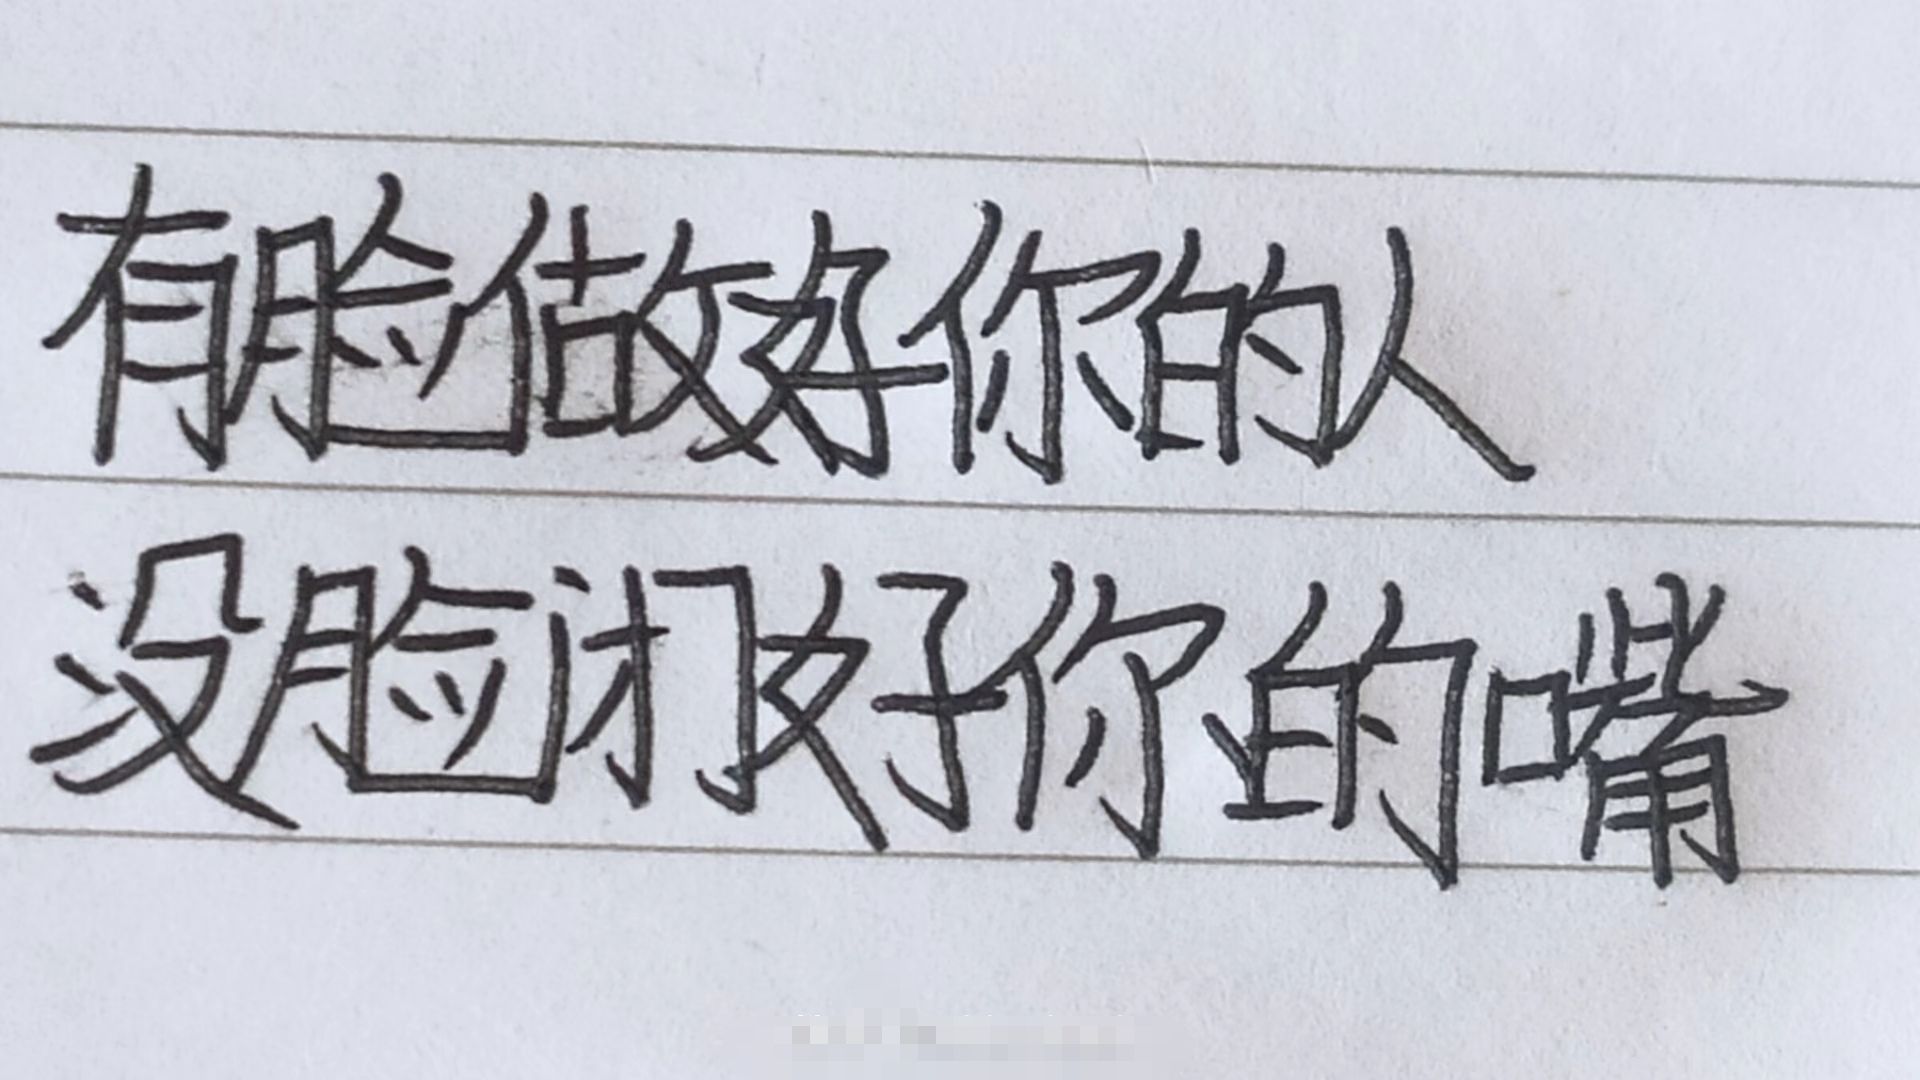 有脸做好你的人
没脸闭好你的嘴